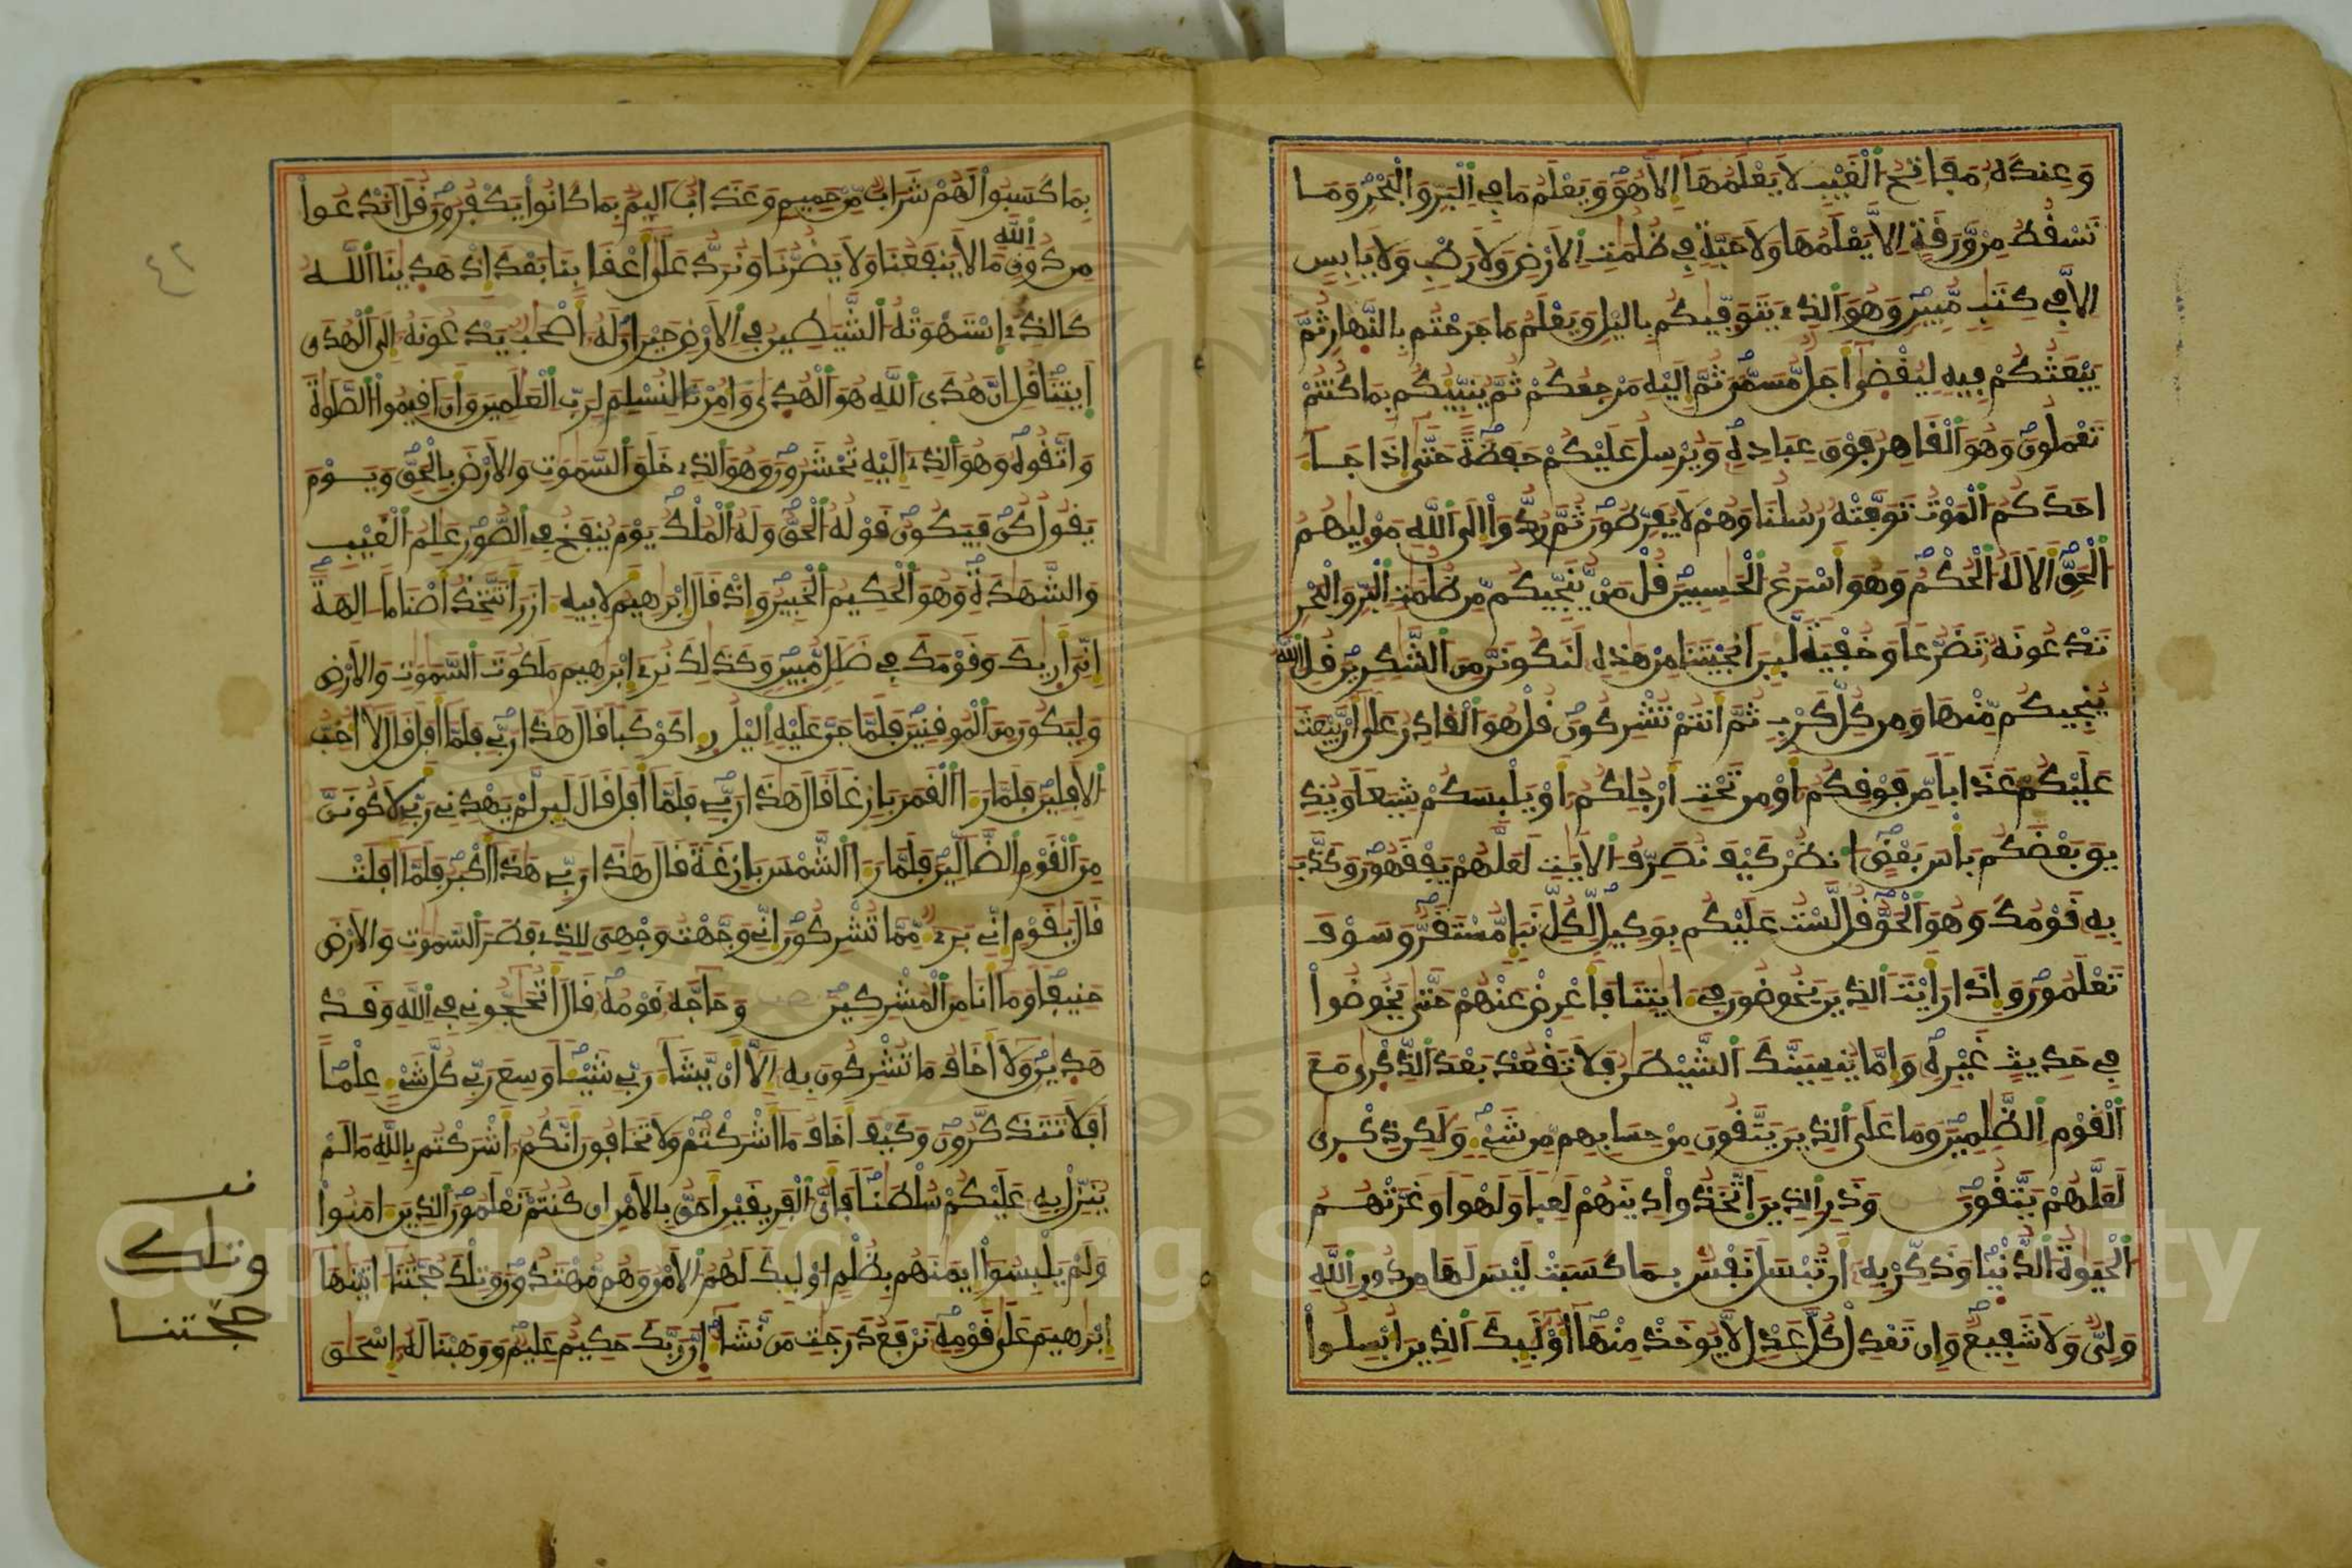 وَعِندَهُ مَفَاتِحُ الْغَيْبِ لَا يَعْلَمُهَا إِلَّا هُوَ وَيَعْلَمُ مَا فِي الْبَرِّ وَالْبَحْرِ وَمَا
تَسْقُطُ مِنْ وَّرَقَةٍ اِلَّا يَعْلَمُهَا وَلَا حَبَّةٍ فِي ظُلُمَتِ الْأَرْضِ وَلَا رَطْبٍ وَلَا يَابِسٍ
الَّا فِي كِتَبٍ مُّبِينٍ وَهُوَ الَّذِي يَتَوَفَّيكُم بِاليْلِ وَيَعْلَمُ مَا جَرَحْتُم بِالنَّهَارِ ثُمَّ
يَبْعَثُكُمْ فِيهِ لِيُقْضَى أَجَلٌ مُّسَمًّى ثُمَّ إِلَيْهِ مَرْجِعُكُمْ ثُمَّ يُنَبِّئُكُم بِمَا كُنتُمْ
تَعْمَلُونَ وَهُوَ الْقَاهِرُ فَوْقَ عِبَادِهِ وَيُرْسِلُ عَلَيْكُمْ حَفَظَةً حَتَّى إِذَا جَاءَ
احَدَكُمُ الْمَوْتُ تَوَفَّتْهُ رُسُلُنَا وَهُمْ لَا يُفَرِّطُونَ ثُمَّ رُدُّوا إِلَى اللَّهِ مَوْلِيهُمُ
الْحَقِّ أَلَا لَهُ الْحُكْمُ وَهُوَ أَسْرَعُ الْحَسِبِينَ قُلْ مَنْ يُّنَجِّيكُم مِّن ظُلُمَتِ الْبَرِّ وَالْبَحْرِ
تَدْعُونَهُ تَضَرُّعًا وَخُفْيَةً لَّئِنْ أَنْجَيْتَنَا مِنْ هَذِهِ لَنَكُونَنَّ مِنَ الشَّكِرِينَ قُلِ اللَّهُ
يُنجِيكُم مِّنْهَا وَمِن كُلِّ كَرْبٍ ثُمَّ أَنتُمْ تُشْرِكُونَ قُلْ هُوَ الْقَادِرُ عَلَى أَنْ يَّبْعَثَ
عَلَيْكُمْ عَذَابًا مِّن فَوْقِكُمْ أَوْ مِن تَحْتِ أَرْجُلِكُمْ أَوْ يَلْبِسَكُمْ شِيَعًا وَيُذِ
يقَ بَعْضَكُم بَأْسَ بَعْضٍ انظُرْ كَيْفَ نُصَرِّفُ الْأَيَتِ لَعَلَّهُمْ يَفْقَهُونَ وَكَذَّبَ
بِهِ قَوْمُكَ وَهُوَ الْحَقُّ قُل لَّسْتُ عَلَيْكُم بِوَكِيلٍ لِّكُلِّ نَبَإٍ مُّسْتَقَرٌّ وَسَوْفَ
تَعْلَمُونَ وَإِذَا رَأَيْتَ الَّذِينَ يَخُوضُونَ فِي ءَايَتِنَا فَأَعْرِضْ عَنْهُمْ حَتَّى يَخُوضُوا
فِي حَدِيثٍ غَيْرِهِ وَإِمَّا يُنسِيَنَّكَ الشَّيْطَنُ فَلَا تَقْعُدْ بَعْدَ الذِّكْرَى مَعَ
الْقَوْمِ الظَّلِمِينَ وَمَا عَلَى الَّذِينَ يَتَّقُونَ مِنْ حِسَابِهِم مِّن شَيْءٍ وَلَكِن ذِكْرَى
لَعَلَّهُمْ يَتَّقُونَ وَذَرِ الَّذِينَ اتَّخَذُوا دِينَهُمْ لَعِبًا وَلَهْوًا وَغَرَّتْهُمُ
الْحَيَوةُ الدُّنْيَا وَذَكِّرْ بِهِ أَن تُبْسَلَ نَفْسٌ بِمَا كَسَبَتْ لَيْسَ لَهَا مِن دُونِ اللَّهِ
وَلِيٌّ وَلَا شَفِيعٌ وَإِن تَعْدِلْ كُلَّ عَدْلٍ لَّا يُوخَذْ مِنْهَا أُوْلَئِكَ الَّذِينَ أُبْسِلُوا
بِمَا كَسَبُوا لَهُمْ شَرَابٌ مِّنْ حَمِيمٍ وَعَذَابٌ أَلِيمٌ بِمَا كَانُوا يَكْفُرُونَ قُلْ أَنَدْعُوا
مِن دُونِ اللَّهِ مَا لَا يَنفَعُنَا وَلَا يَضُرُّنَا وَنُرَدُّ عَلَى أَعْقَابِنَا بَعْدَ إِذْ هَدَينَا اللَّهُ
كَالَّذِي اسْتَهْوَتْهُ الشَّيَطِينُ فِي الْأَرْضِ حَيْرَانَ لَهُ أَصْحَبٌ يَدْعُونَهُ إِلَى الْهُدَى
ايتِنَا قُلْ إِنَّ هُدَى اللَّهِ هُوَ الْهُدَى وَأُمِرْنَا لِنُسْلِمَ لِرَبِّ الْعَلَمِينَ وَأَنْ أَقِيمُوا الصَّلَوةَ
وَاتَّقُوهُ وَهُوَ الَّذِي إِلَيْهِ تُحْشَرُونَ وَهُوَ الَّذِي خَلَقَ السَّمَوَتِ وَالْأَرْضَ بِالْحَقِّ وَيَوْمَ
يَقُولُ كُن فَيَكُونُ قَوْلُهُ الْحَقُّ وَلَهُ الْمُلْكُ يَوْمَ يُنفَخُ فِي الصُّورِ عَلِمُ الْغَيْبِ
وَالشَّهَدَةِ وَهُوَ الْحَكِيمُ الْخَبِيرُ وَإِذْ قَالَ إِبْرَهِيمُ لِأَبِيهِ ءَازَرَ أَتَتَّخِذُ أَصْنَامًا ءَالِهَةً
إِنِّي أَرَيكَ وَقَوْمَكَ فِي ضَلَلٍ مُّبِينٍ وَكَذَلِكَ نُرِي إِبْرَهِيمَ مَلَكُوتَ السَّمَوَتِ وَالْأَرْضِ
وَلِيَكُونَ مِنَ الْمُوقِنِينَ فَلَمَّا جَنَّ عَلَيْهِ الَّيْلُ رَءَا كَوْكَبًا قَالَ هَذَا رَبِّي فَلَمَّا أَفَلَ قَالَ لَا أُحِبُّ
الْأَفِلِينَ فَلَمَّا رَءَا الْقَمَرَ بَازِغًا قَالَ هَذَا رَبِّي فَلَمَّا أَفَلَ قَالَ لَئِن لَّمْ يَهْدِنِي رَبِّي لَأَكُونَنَّ
مِنَ الْقَوْمِ الضَّالِّينَ فَلَمَّا رَءَا الشَّمْسَ بَازِغَةً قَالَ هَذَا رَبِّي هَذَا أَكْبَرُ فَلَمَّا أَفَلَتْ
قَالَ يَقَوْمِ إِنِّي بَرِيءٌ مِّمَّا تُشْرِكُونَ إِنِّي وَجَّهْتُ وَجْهِيَ لِلَّذِي فَطَرَ السَّمَوَتِ وَالْأَرْضَ
حَنِيفًا وَمَا أَنَا مِنَ الْمُشْرِكِينَ وَحَاجَّهُ قَوْمُهُ قَالَ أَتُحَجُّونِي فِي اللَّهِ وَقَدْ
هَدَينِ وَلَا أَخَافُ مَا تُشْرِكُونَ بِهِ إِلَّا أَنْ يَّشَاءَ رَبِّي شَيْئًا وَسِعَ رَبِّي كُلَّ شَيْءٍ عِلْمًا
أَفَلَا تَتَذَكَّرُونَ وَكَيْفَ أَخَافُ مَا أَشْرَكْتُمْ وَلَا تَخَافُونَ أَنَّكُمْ أَشْرَكْتُم بِاللَّهِ مَا لَمْ
يُنَزِّلْ بِهِ عَلَيْكُمْ سُلْطَنًا فَأَيُّ الْفَرِيقَيْنِ أَحَقُّ بِالْأَمْنِ إِن كُنتُمْ تَعْلَمُونَ الَّذِينَ ءَامَنُوا
وَلَمْ يَلْبِسُوا إِيمَنَهُم بِظُلْمٍ أُوْلَئِكَ لَهُمُ الْأَمْنُ وَهُم مُّهْتَدُونَ وَتِلْكَ حُجَّتُنَا ءَاتَيْنَهَا
إِبْرَهِيمَ عَلَى قَوْمِهِ نَرْفَعُ دَرَجَتِ مَن نَّشَاءُ إِنَّ رَبَّكَ حَكِيمٌ عَلِيمٌ وَوَهَبْنَا لَهُ إِسْحَقَ
وتلك
حجتنا
٤٢
Copyright © King Saud University